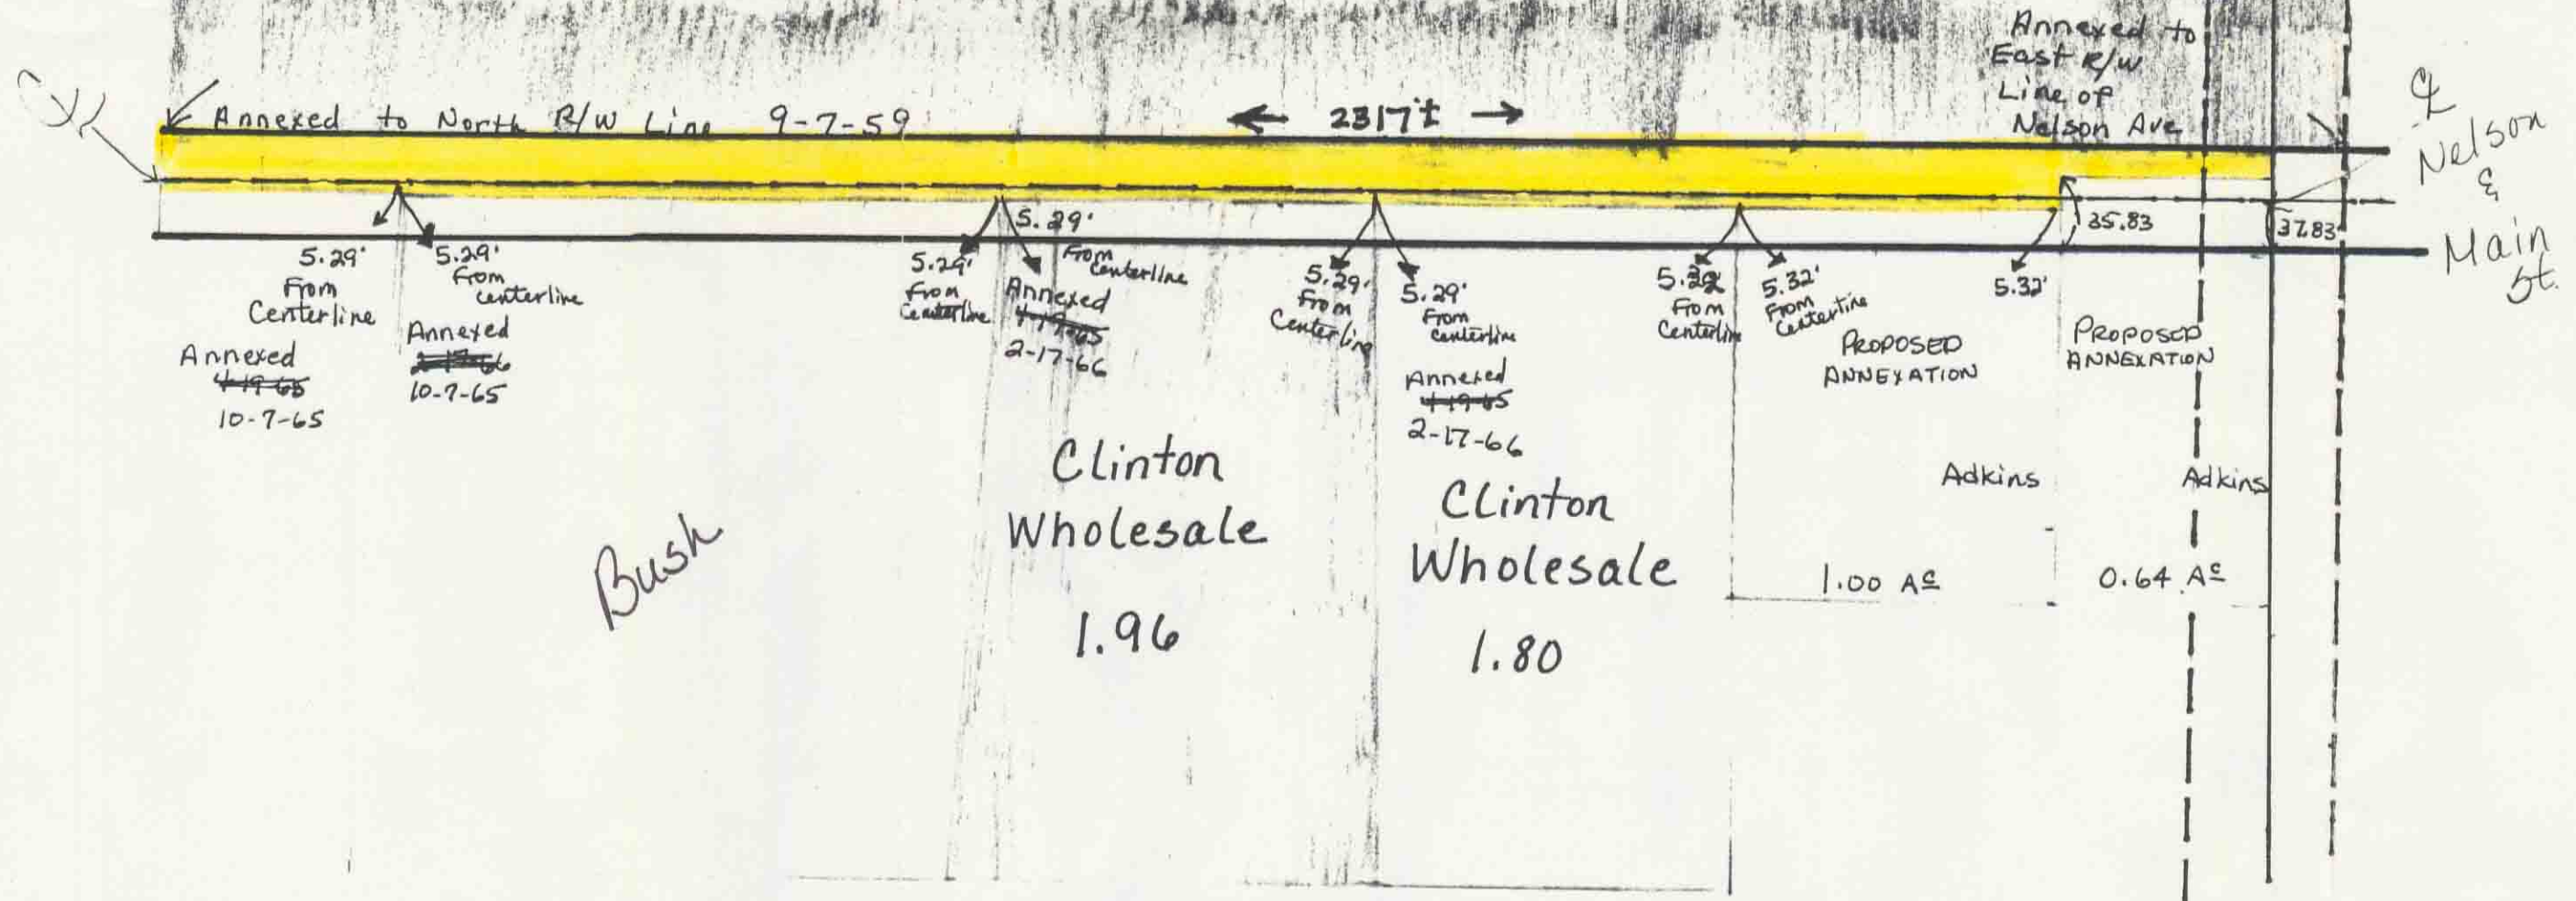 Annexed to
East R/W
Line of
Nelson Ave
Annexed to North R/W Line 9-7-59
← 2317± →
℄
Nelson
&
Main
St.
5.29'
From
Centerline
Annexed
4-19-65
10-7-65
5.29'
From
centerline
Annexed
2-17-66
10-7-65
5.29'
From
Centerline
5.29'
From
Centerline
Annexed
4-19-65
2-17-66
5.29'
From
Centerline
5.29'
From
Centerline
Annexed
4-19-65
2-17-66
5.32
From
Centerline
5.32'
From
Centerline
5.32'
35.83
37.83'
PROPOSED
ANNEXATION
PROPOSED
ANNEXATION
Bush
Clinton
Wholesale
1.96
Clinton
Wholesale
1.80
Adkins
1.00 Ac
Adkins
0.64 Ac